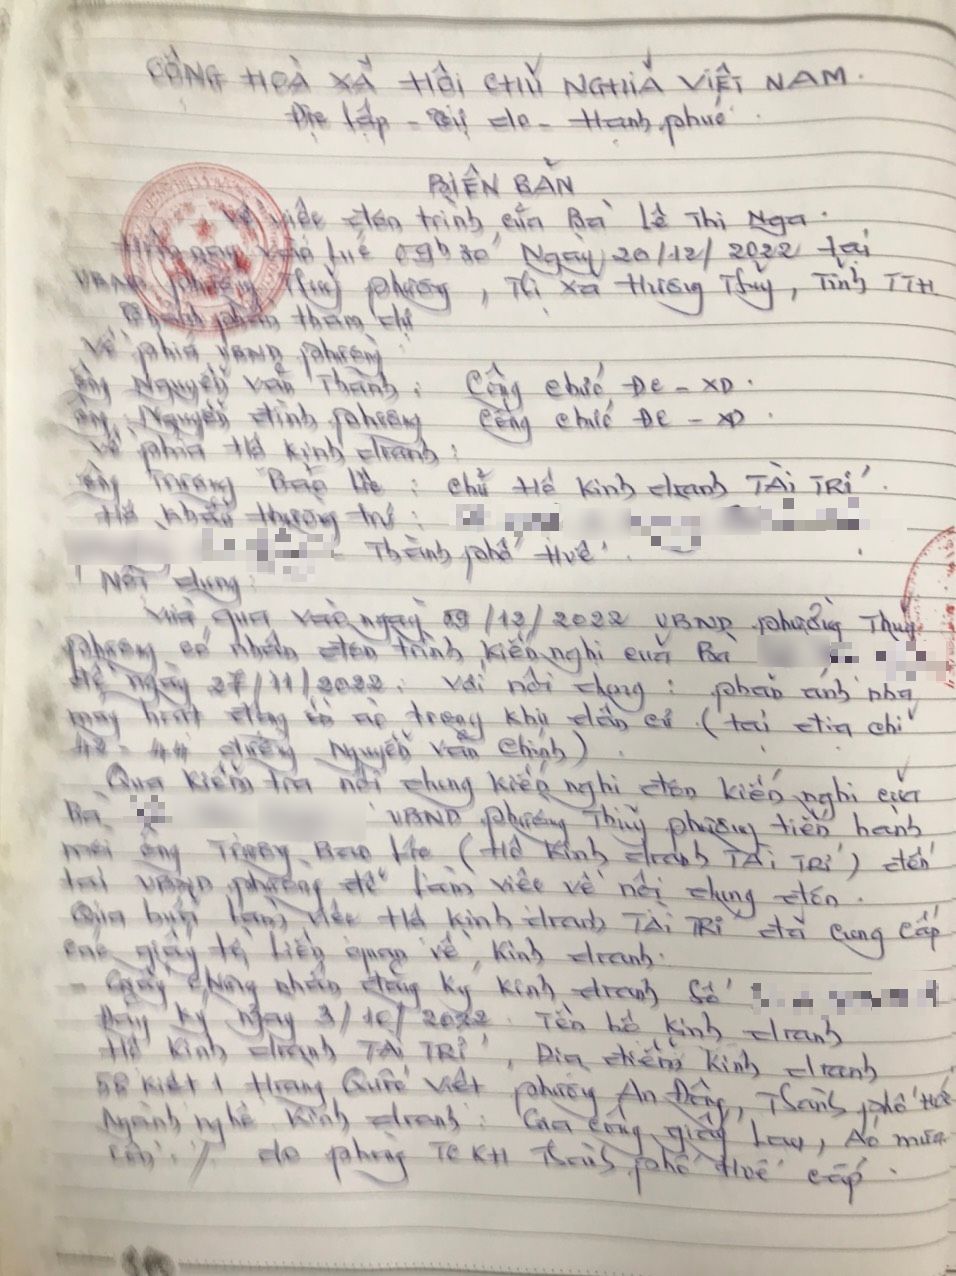 CỘNG HOÀ XÃ HỘI CHỦ NGHĨA VIỆT NAM.
Độc lập - Tự do - Hạnh phúc.
BIÊN BẢN
Về việc đơn trình của Bà Lê Thị Nga.
Hôm nay vào lúc 09h30' Ngày 20/12/2022 tại
UBND phường Thuỷ phương, Thị xã Hương Thủy, Tỉnh TTH
Thành phần tham dự
Về phía UBND phường
Ông Nguyễn Văn Thành: Công chức ĐC - XD.
Ông Nguyễn đình phương Công chức ĐC - XD.
Về phía Hộ kinh doanh:
Ông Trương Bảo : chủ Hộ kinh doanh TÀI TRÍ.
Hộ khẩu thường trú:
- Thành phố Huế.
Nội dung:
Vừa qua vào ngày 09/12/2022 UBND phường Thuỷ
phương có nhận đơn trình kiến nghị của Bà
Đề ngày 27/11/2022: với nội dung: phản ánh nhà
hoạt động ồn ào trong khu dân cư (tại địa chỉ
42 - 44 đường Nguyễn Văn Chính).
Qua kiểm tra nội dung kiến nghị đơn kiến nghị của
Bà UBND phường Thủy phương tiến hành
mời ông Trương Bảo (Hộ kinh doanh TÀI TRÍ) đến
tại UBND phường để làm việc về nội dung đơn.
Qua buổi làm việc Hộ kinh doanh TÀI TRÍ đã cung cấp
các giấy tờ liên quan về kinh doanh.
- Giấy chứng nhận đăng ký kinh doanh Số
Đăng ký ngày 3/10/2022. Tên hộ kinh doanh
Hộ kinh doanh TÀI TRÍ, Địa điểm kinh doanh
58 kiệt 1 Hoàng Quốc Việt phường An Đông, Thành phố Huế
Ngành nghề kinh doanh: Gia công giấy lau, Áo mưa
do phòng TCKH Thành phố Huế cấp.